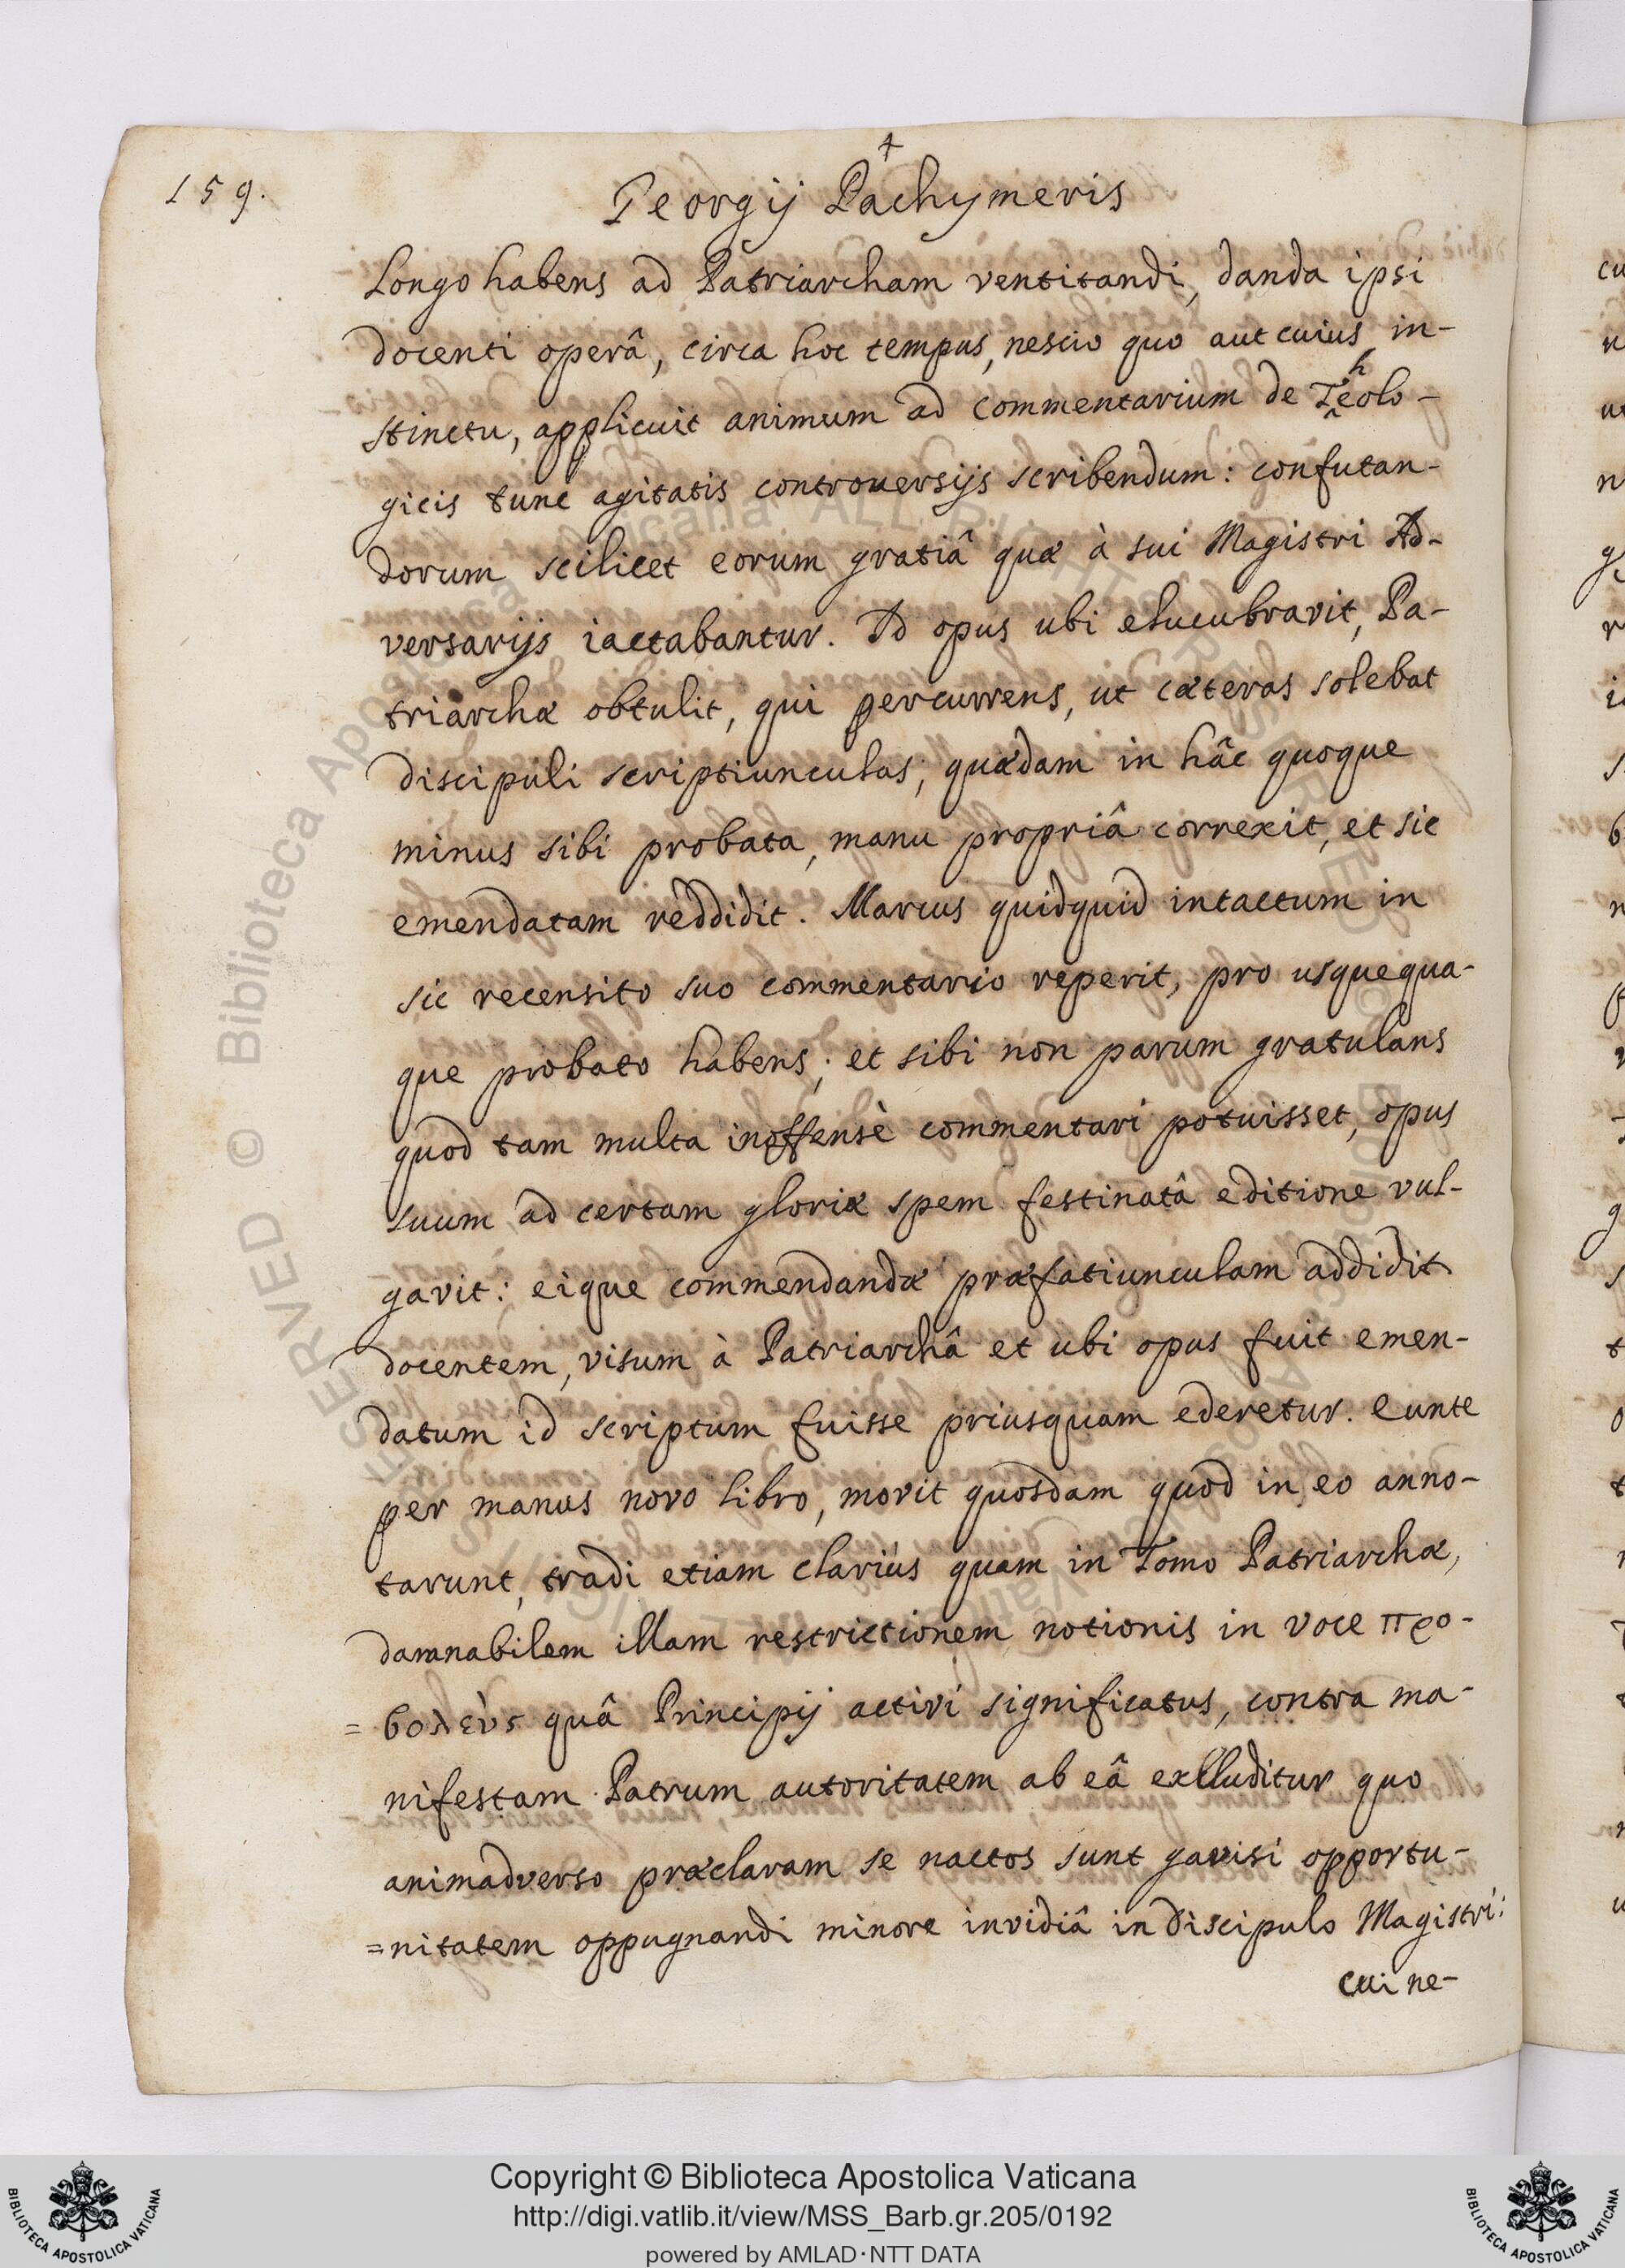 159.
+
Georgij Pachymeris
Longo habens ad Patriarcham ventitandi, danda ipsi
docenti operâ, circa hoc tempus, nescio quo aut cuius in-
stinctu, applicuit animum ad commentarium de Theolo-
gicis tunc agitatis controuersijs scribendum: confutan-
dorum scilicet eorum gratiâ quæ à sui Magistri Ad-
versarijs iactabantur. Id opus ubi elucubravit, Pa-
triarchæ obtulit, qui percurrens, ut cæteras solebat
discipuli scriptiunculas, quædam in hâc quoque
minus sibi probata, manu propriâ correxit, et sic
emendatam reddidit. Marcus quidquid intactum in
sic recensito suo commentario reperit, pro usquequa-
que probato habens; et sibi non parum gratulans
quod tam multa inoffensè commentari potuisset, opus
suum ad certam gloriæ spem festinatâ editione vul-
gavit: eique commendandæ præfatiunculam addidit
docentem, visum à Patriarchâ et ubi opus fuit emen-
datum id scriptum fuisse priusquam ederetur. Eunte
per manus novo libro, movit quosdam quod in eo anno-
tarunt, tradi etiam clariùs quam in Tomo Patriarchæ,
damnabilem illam restrictionem notionis in voce προ-
=βολεὺς quâ Principij activi significatus, contra ma-
nifestam Patrum autoritatem ab eâ excluditur quo
animadverso præclaram se nactos sunt gavisi opportu-
=nitatem oppugnandi minore invidiâ in discipulo Magistri:
cui ne-
Copyright © Biblioteca Apostolica Vaticana
http://digi.vatlib.it/view/MSS_Barb.gr.205/0192
powered by AMLAD·NTT DATA